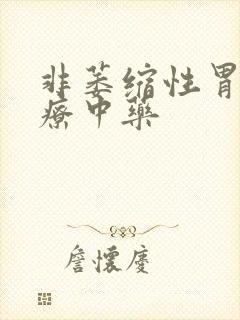 非萎缩性胃
疗中药
詹怀庆